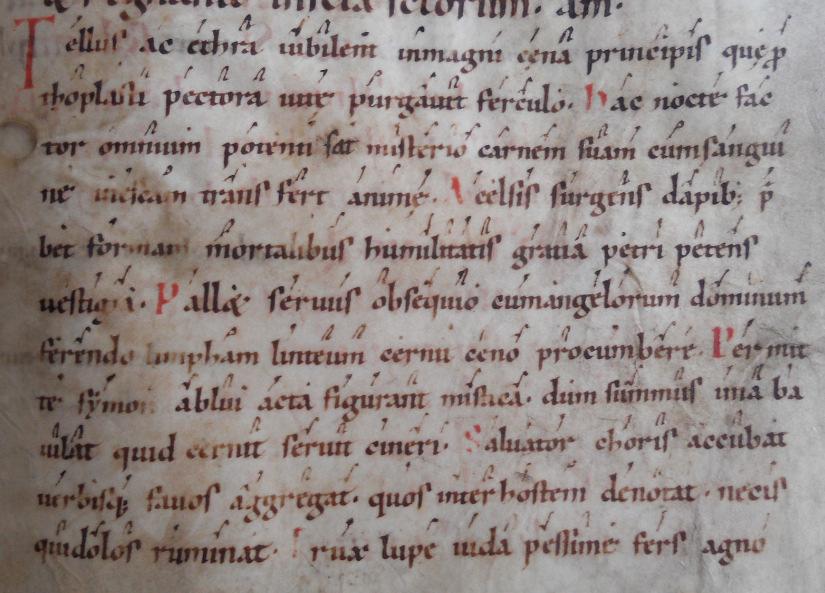 sctorum. am.
Tellus ac ethra iubilent inmagni cena principis que p
thoplasti pectora uite purgauit ferculo. Hac nocte fac
tor omnium potenti sat misterio carnem suam cumsangui
ne inescam trans fert anime. A celsis surgens dapib; p
bet formam mortalibus humilitatis gratia petri petens
uestigia. Pallæ seruus obsequio cumangelorum dominum
ferendo limpham linteum cernit ceno procumbere. Permit
te symon ablui acta figurant mistica. dum summus ima ba
iulat quid cernit seruit cineri. Saluator choris accubat
uerbisq; fauos aggregat. quos inter hostem denotat. necis
quidolos ruminat. Trux lupe iuda pessime fers agno